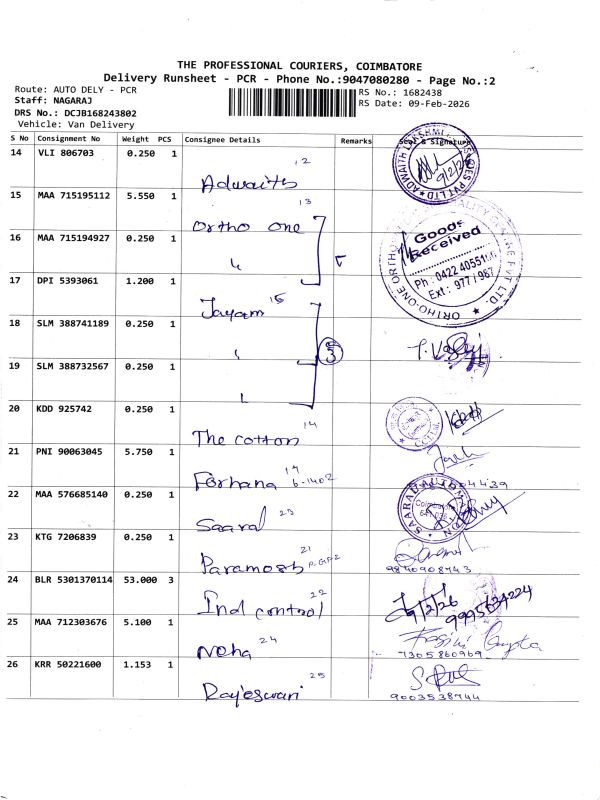 THE PROFESSIONAL COURIERS, COIMBATORE
Delivery Runsheet - PCR - Phone No.:9047080280 - Page No.:2
Route: AUTO DELY - PCR
RS No.: 1682438
Staff: NAGARAJ
RS Date: 09-Feb-2026
DRS No.: DCJB168243802
Vehicle: Van Delivery
S No Consignment No Weight PCS Consignee Details Remarks Seal & Signature
14 VLI 806703 0.250 1 12
Adwaith 9/2/26
15 MAA 715195112 5.550 1 13
Ortho one
16 MAA 715194927 0.250 1
Goods Received
Ph : 0422 40551
Ext : 977 / 987
17 DPI 5393061 1.200 1
Jayam 15
18 SLM 388741189 0.250 1
3
19 SLM 388732567 0.250 1
20 KDD 925742 0.250 1 14
The cotton
21 PNI 90063045 5.750 1
Farhana
22 MAA 576685140 0.250 1
Saaral
23 KTG 7206839 0.250 1 21
24 BLR 5301370114 53.000 3 22
Ind control
25 MAA 712303676 5.100 1 24
Neha
7305860969
26 KRR 50221600 1.153 1 25
Rajeswari
9003538744